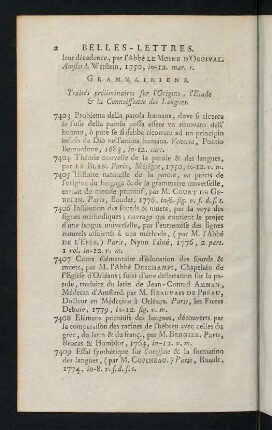 2 BELLES-LETTRES.
leur décadence, par l'Abbé LE MOINE D'ORGIVAL.
Amsterd. Wetstein, 1750, in-12. mar. r.
GRAMMAIRIENS.
Traités préliminaires sur l'Origine, l'Etude
& la Connoissance des Langues.
7403 Problema della parola humana, dove si ricerca
se l'uso della parola possa essere un ritrovato dell'
homo, ò pure se si debba ricorrere ad un principio
infuso da Dio nell'anima humana. Venetia, Pontio
Bernardone, 1683, in-12. cart.
7404 Théorie nouvelle de la parole & des langues,
par LE BLAN. Paris, Mérigot, 1750, in-12. v. m.
7405 Histoire naturelle de la parole, ou précis de
l'origine du langage & de la grammaire universelle,
extrait du monde primitif, par M. COURT DE GE-
BELIN. Paris, Boudet, 1776, in-8. fig. v. f. d. s. t.
7406 Institution des sourds & muets, par la voye des
signes méthodiques; ouvrage qui contient le projet
d'une langue universelle, par l'entremise des signes
naturels assujettis à une méthode, (par M. l'ABBÉ
DE L'EPÉE.) Paris, Nyon l'aîné, 1776, 2 part.
1 vol. in-12. v. m.
7407 Cours élémentaire d'éducation des sourds &
muets, par M. l'Abbé DESCHAMPS, Chapelain de
l'Eglise d'Orléans; suivi d'une dissertation sur la pa-
role, traduite du latin de Jean-Conrad AMMAN,
Médecin d'Amsterd. par M. BEAUVAIS DE PREAU,
Docteur en Médecine à Orléans. Paris, les Freres
Debure, 1779, in-12. fig. v. m.
7408 Elémens primitifs des langues, découverts par
la comparaison des racines de l'hébreu avec celles du
grec, du latin & du franç. par M. BERGIER. Paris,
Brocas & Humblot, 1764, in-12. v. m.
7409 Essai synthétique sur l'origine & la formation
des langues, (par M. COPINEAU.) Paris, Ruault,
1774, in-8. v. f. d. s. t.